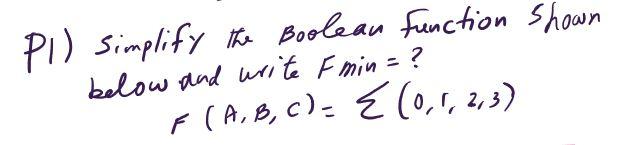 P1) Simplify the Boolean function shown
below and write Fmin = ?
F (A, B, C) = Σ (0, 1, 2, 3)